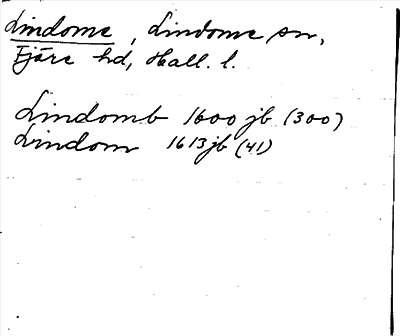 Lindome, Lindome sn,
Fjäre hd, Hall. l.
Lindomb 1600 jb (300)
Lindom 1613 jb (41)